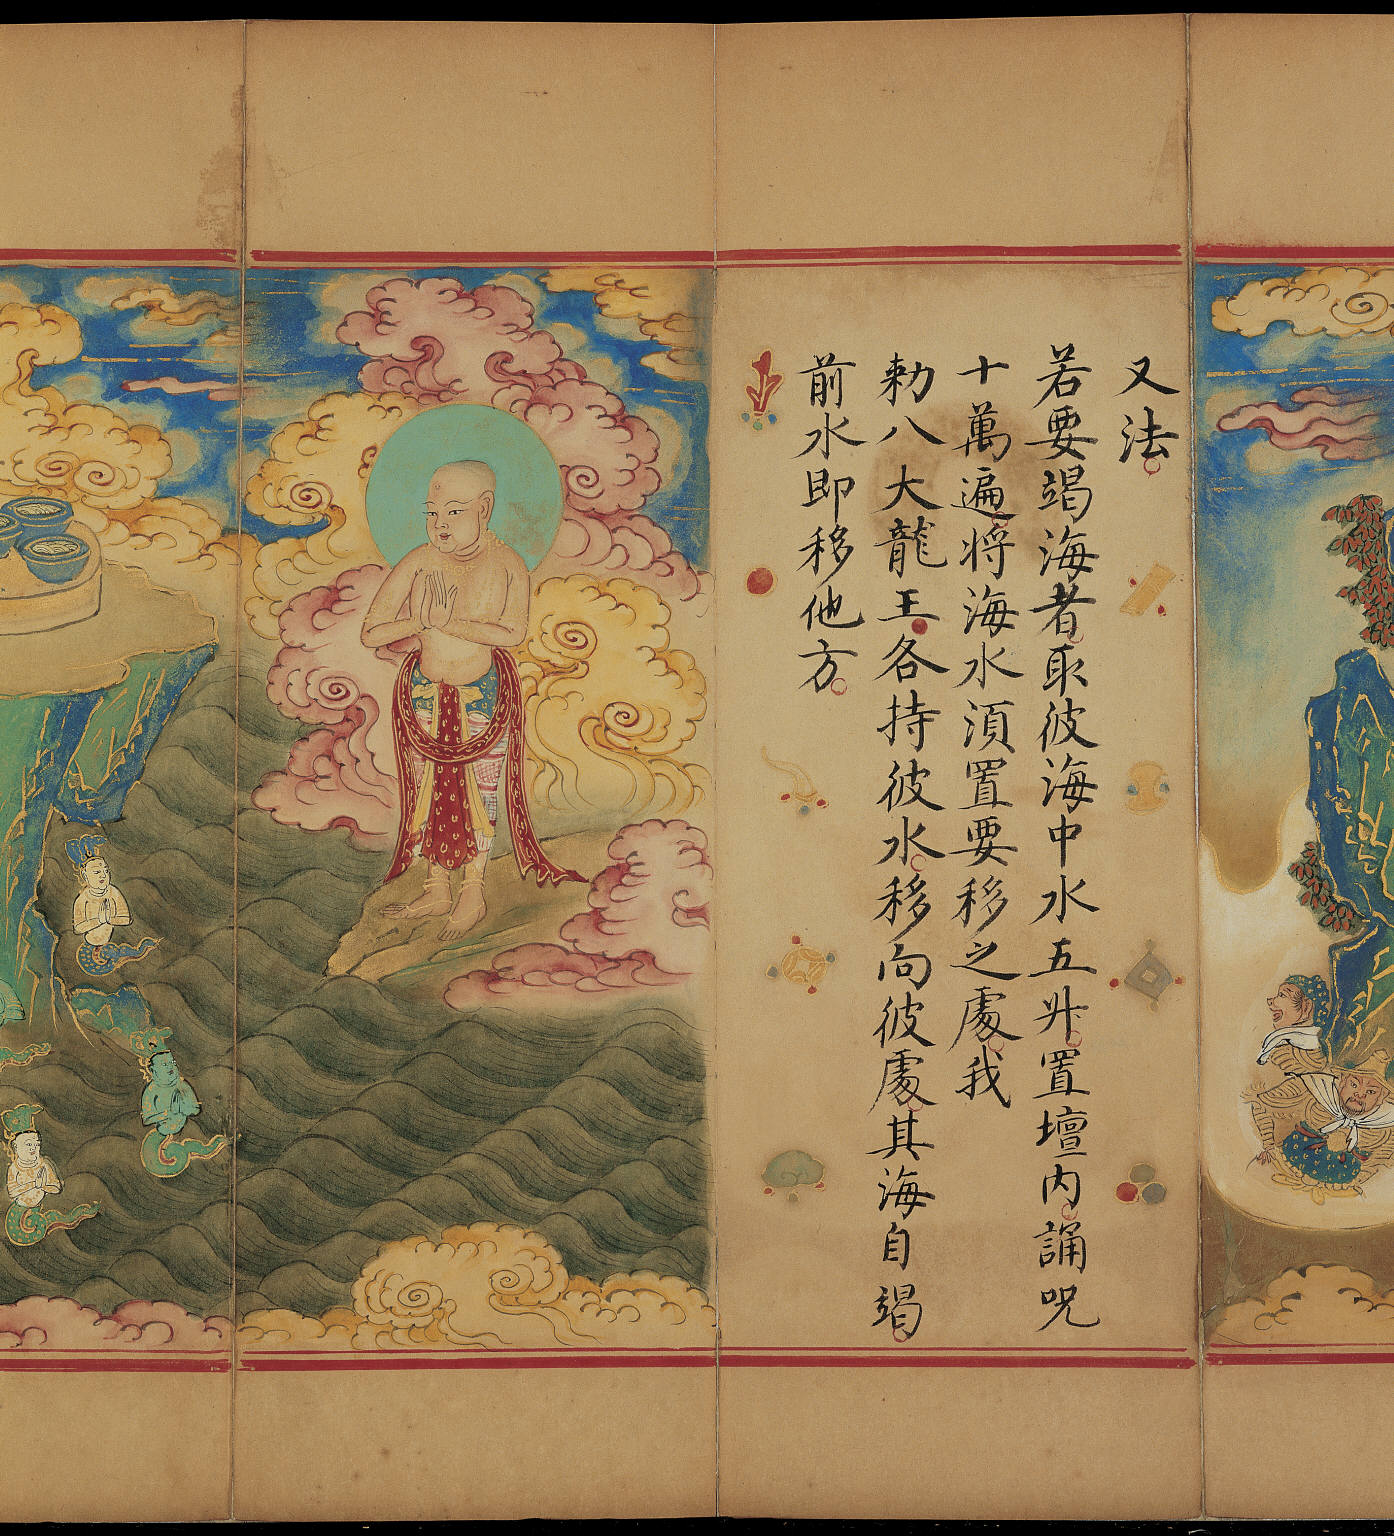 又法
若要竭海者取彼海中水五升置壇內誦呪
十萬遍將海水湏置要移之處我
勑八大龍王各持彼水移向彼處其海自竭
前水即移他方